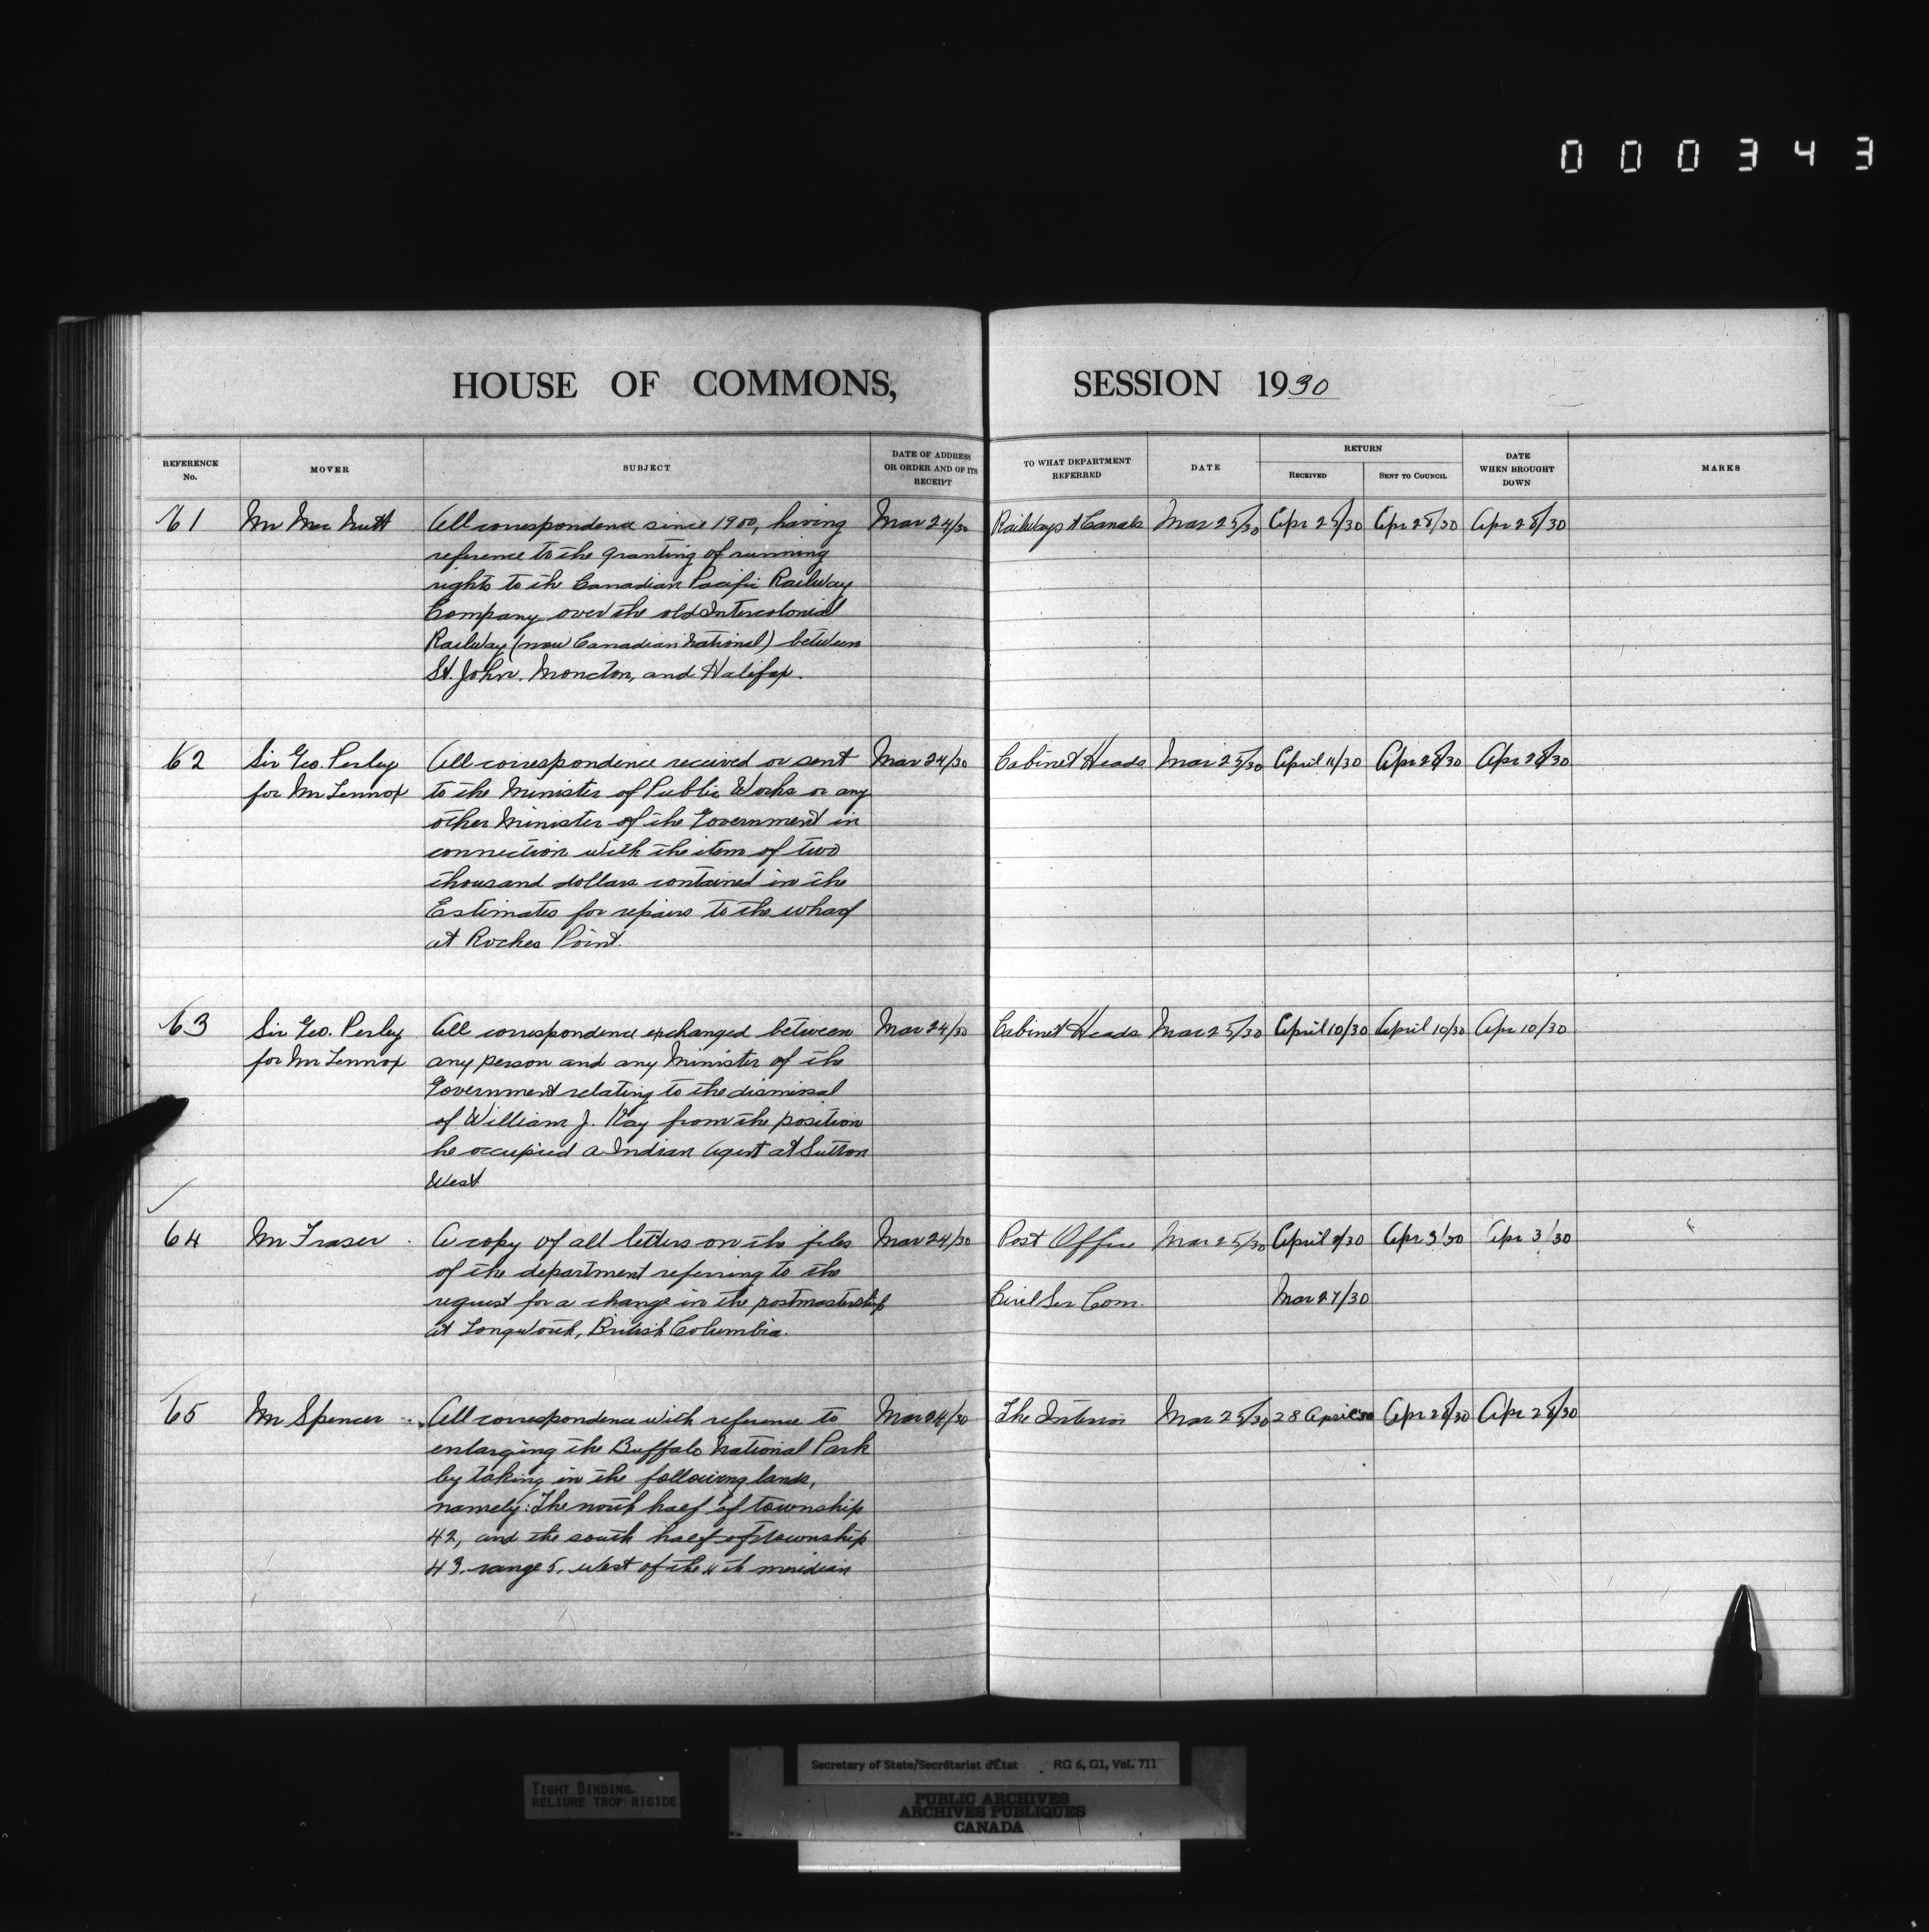 000343
HOUSE OF COMMONS, SESSION 1930
REFERENCE No. MOVER SUBJECT DATE OF ADDRESS OR ORDER AND OF ITS RECEIPT TO WHAT DEPARTMENT REFERRED DATE RETURN RECEIVED SENT TO COUNCIL DATE WHEN BROUGHT DOWN MARKS
61 Mr MacNutt All correspondence since 1900, having Mar 24/30 Railways & Canals Mar 25/30 Apr 25/30 Apr 28/30 Apr 28/30
reference to the granting of running
rights to the Canadian Pacific Railway
Company over the old Intercolonial
Railway (now Canadian National) between
St. John, Moncton, and Halifax.
62 Sir Geo. Perley All correspondence received or sent Mar 24/30 Cabinet Heads Mar 25/30 April 11/30 Apr 28/30 Apr 28/30
for Mr Lennox to the Minister of Public Works or any
other Minister of the Government in
connection with the item of two
thousand dollars contained in the
Estimates for repairs to the wharf
at Roches Point.
63 Sir Geo. Perley All correspondence exchanged between Mar 24/30 Cabinet Heads Mar 25/30 April 10/30 April 10/30 Apr 10/30
for Mr Lennox any person and any Minister of the
Government relating to the dismissal
of William J. Kay from the position
he occupied a Indian Agent at Sutton
West
64 Mr Fraser A copy of all letters on the files Mar 24/30 Post Office Mar 25/30 April 2/30 Apr 3/30 Apr 3/30
of the department referring to the
request for a change in the postmastership Civil Ser Com. Mar 27/30
at Longworth, British Columbia.
65 Mr Spencer All correspondence with reference to Mar 24/30 The Interior Mar 25/30 28 April 30 Apr 28/30 Apr 28/30
enlarging the Buffalo National Park
by taking in the following lands,
namely: The north half of township
42, and the south half of township
43, range 5, west of the 4th meridian
Secretary of State/Secrétariat d'État RG 6, G1, Vol. 711
TIGHT BINDING
RELIURE TROP RIGIDE
PUBLIC ARCHIVES
ARCHIVES PUBLIQUES
CANADA